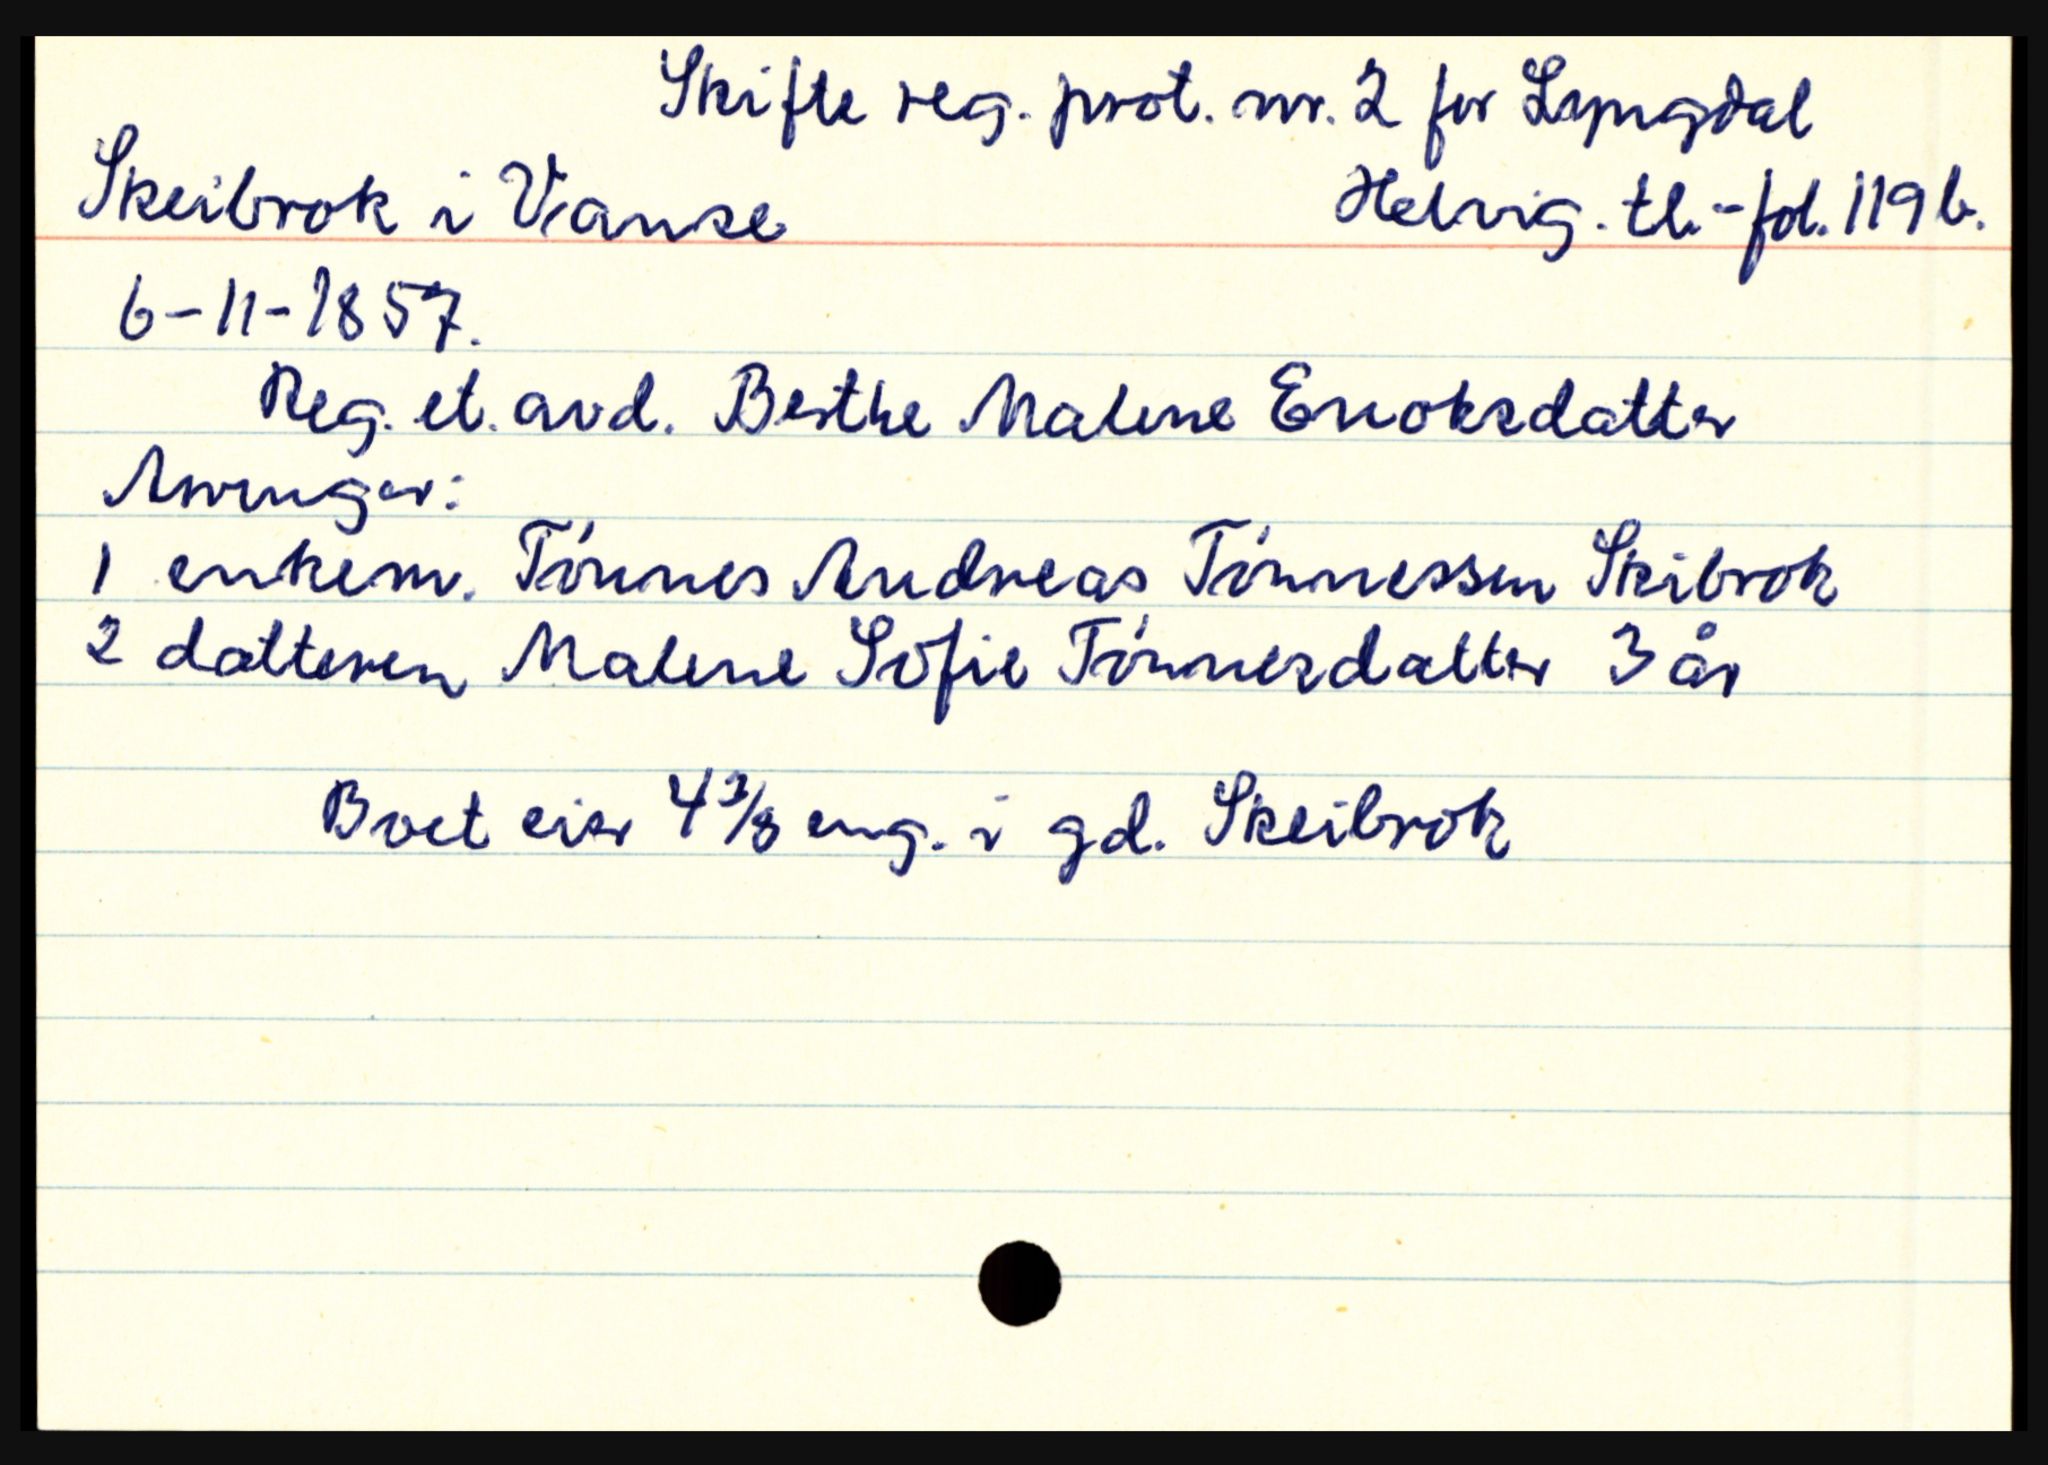 Skifte reg. prot. nr. 2 for Lyngdal
Skeibrok i Vanse Helvig. tl. - fol. 119 b.
6-11-1857.
Reg. et. avd. Berthe Malene Enoksdatter
Arvinger:
1 enkem. Tønnes Andreas Tønnessen Skibrok
2 datteren Malene Sofie Tønnesdatter 3 år
Boet eier 4 3/8 eng. i gd. Skeibrok